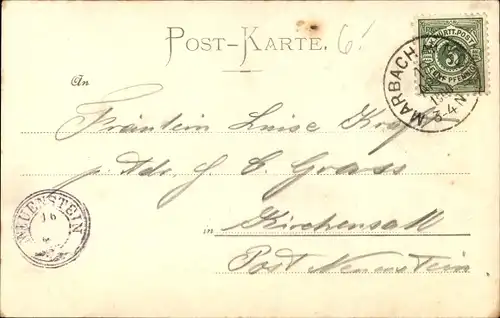 POST-KARTE. 6!
K. WÜRTT. POST
5
FÜNF PFENNIG
MARBACH
3-4 N.
An
Fräulein Luise Kraft
p. Adr. J. C. Grass
in Kirchensall
Post Neuenstein
NEUENSTEIN
16